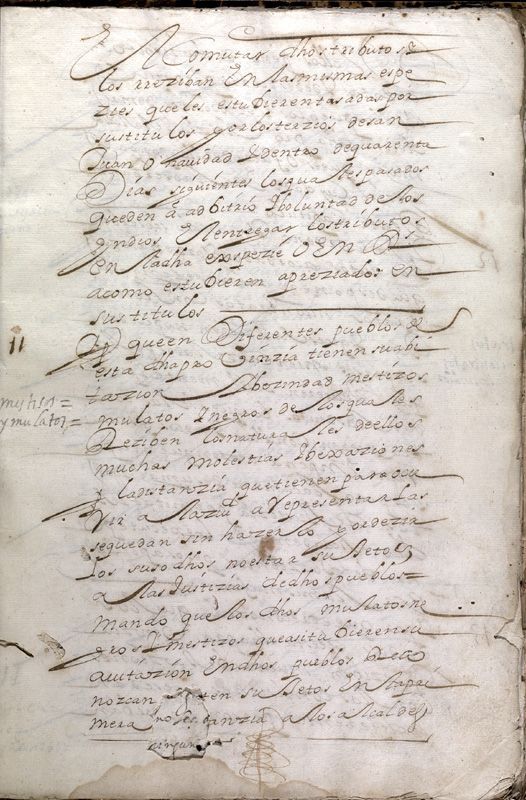 En Comutar dhos tributos i
los rreziban En las mismas espe
zies que les estubieren tasadas por
sus titulos y por los terzios de san
Juan o nauidad E dentro de quarenta
Dias siguientes los quales pasados
queden a adbitrio I boluntad de los
Yndios El entregar los tributos
en la dha espezie O En Rs
a como estubieren apreziados en
sus titulos
11
Y que en Diferentes pueblos de
esta dha probinzia tienen su abi
tazion I bezindad mestizos
mestisos =
y mulatos =
mulatos I negros de los quales
Reziben los naturales de ellos
muchas molestias I bexaziones
y la distanzia que tienen para ocu
rrir a la ziud a Representarlas
se quedan sin hazerlo y por dezir
los suso dhos no estar sujetos
a las Justizias de dhos pueblos =
mando que los dhos mulatos ne
gros I mestizos que asi tubieren su
auitazion En dhos pueblos Reco
nozcan esten sujetos En la pri
mera ynstanzia a los alcaldes